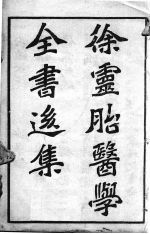 徐靈胎醫學
全書集